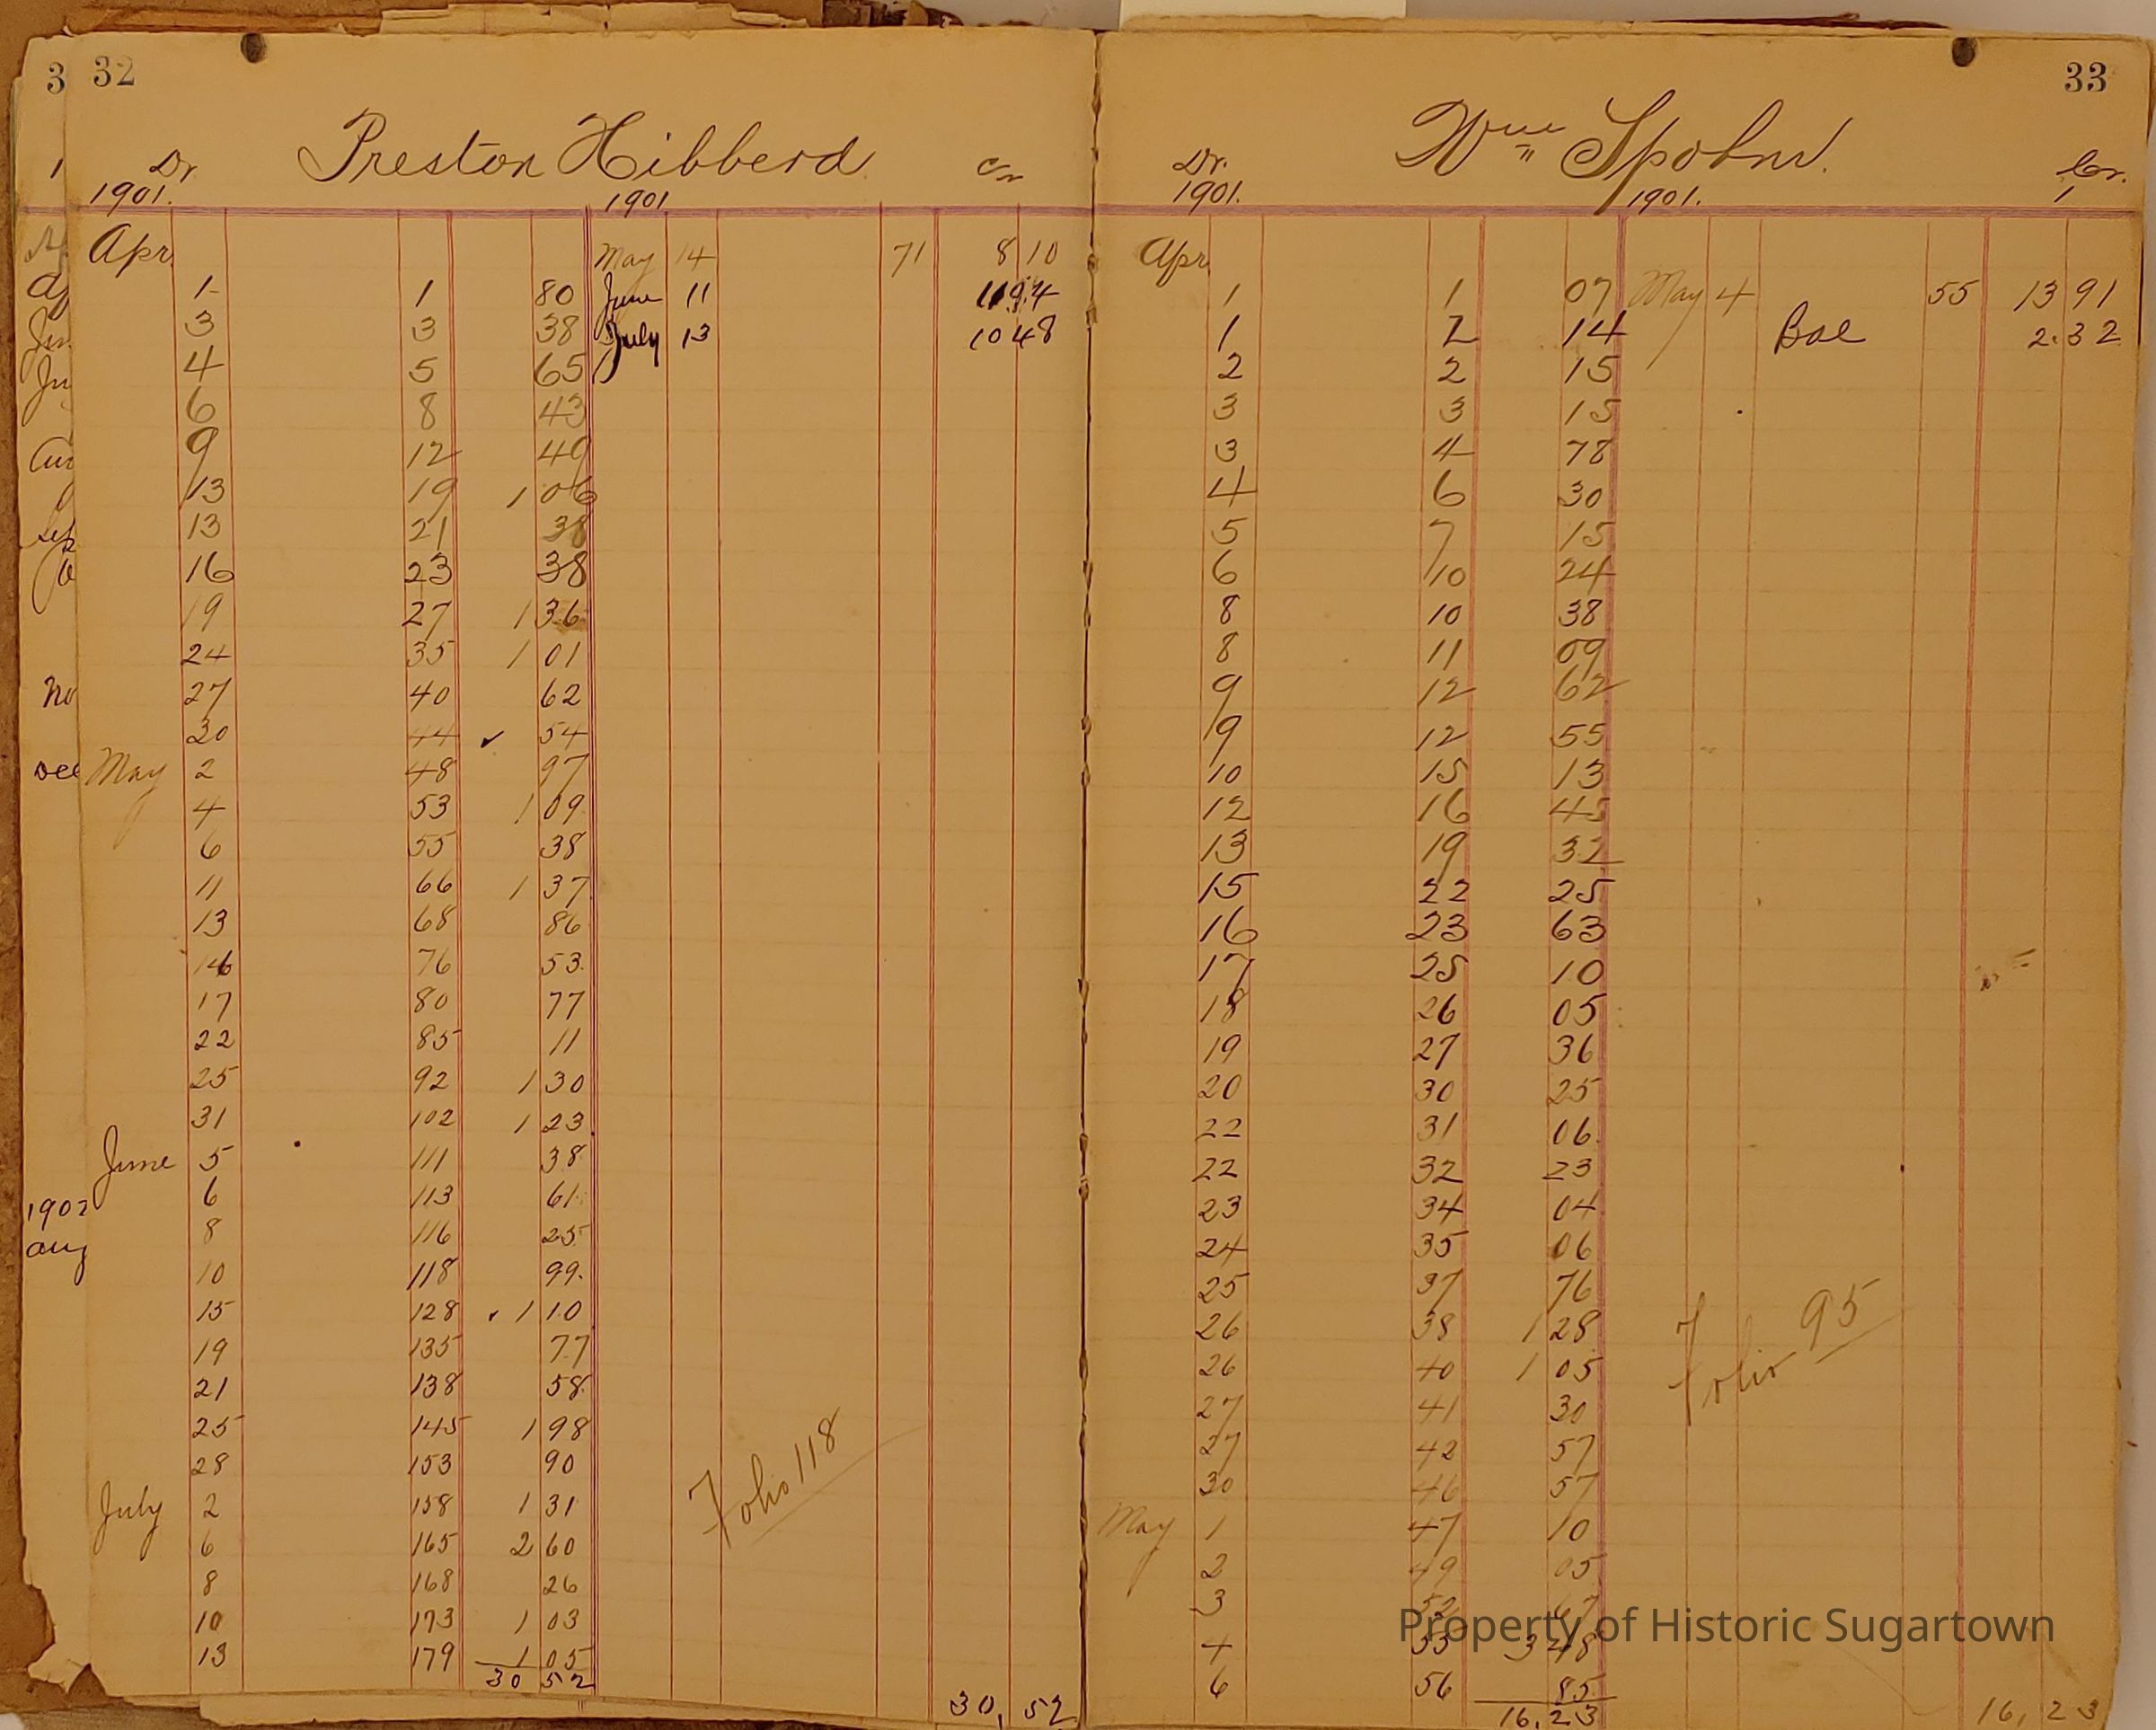 3 32
Preston Hibberd
Dr Cr
1901. 1901
Apr. May 14 71 8 10
1 1 80 June 11 11 94
3 3 38 July 13 10 48
4 5 65
6 8 43
9 12 49
13 19 1 06
13 21 38
16 23 38
19 27 1 36
24 35 1 01
27 40 62
30 44 ✓ 54
May 2 48 97
4 53 1 09
6 55 38
11 66 1 37
13 68 86
16 76 53
17 80 77
22 85 11
25 92 1 30
31 102 1 23
June 5 111 38
6 113 61
8 116 25
10 118 99
15 128 ✓ 1 10
19 135 77
21 138 58
25 145 1 98
28 153 90
July 2 158 1 31
6 165 2 60
8 168 26
10 173 1 03
13 179 1 05
30 52
30, 52
Folio 118
No
Dec
1902
aug
33
Wm Spohn.
Dr. Cr.
1901. 1901.
Apr
1 1 07 May 4 55 13 91
1 2 14 Bal 2.32
2 2 15
3 3 15
3 4 78
4 6 30
5 7 15
6 10 24
8 10 38
8 11 09
9 12 62
9 12 55
10 15 13
12 16 45
13 19 32
15 22 25
16 23 63
17 25 10
18 26 05
19 27 36
20 30 25
22 31 06
22 32 23
23 34 04
24 35 06
25 37 76
26 38 1 28
26 40 1 05
27 41 30
27 42 57
30 46 57
May 1 47 10
2 49 05
3 52 67
4 53 3 48
6 56 85
16,23
16,23
Folio 95
Property of Historic Sugartown